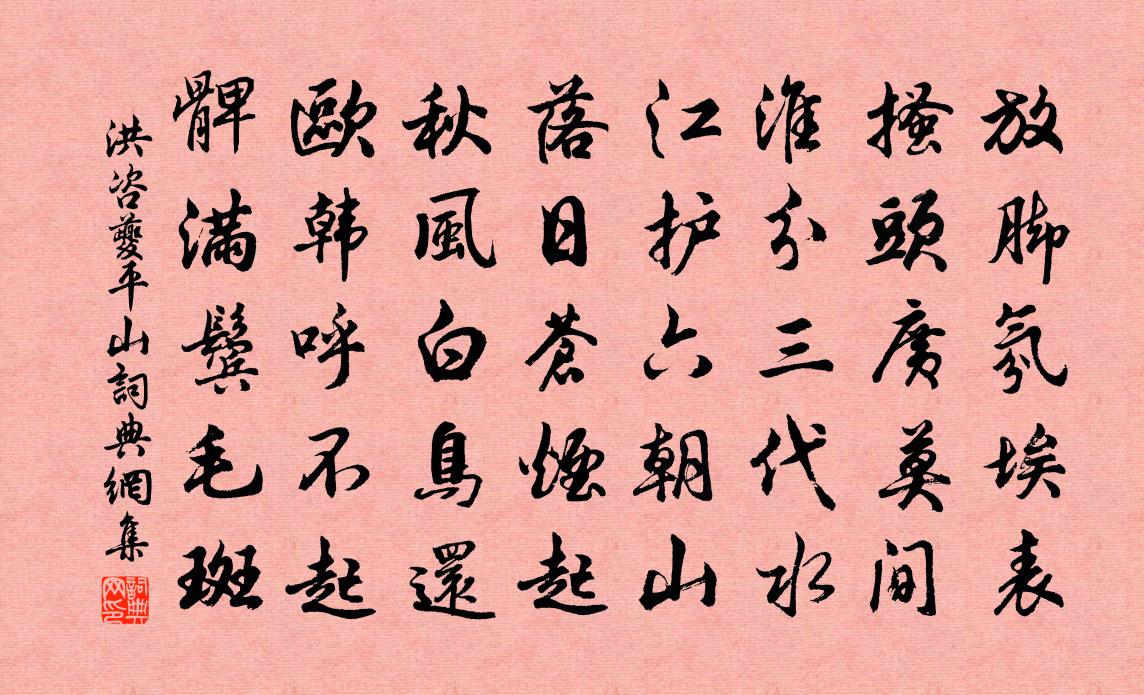 放脚氛埃表
搔頭廣莫间
淮分三代水
江护六朝山
落日蒼煙起
秋風白鳥還
歐韩呼不起
髀满鬓毛斑
洪咨夔平山詞典網集
詞典网印